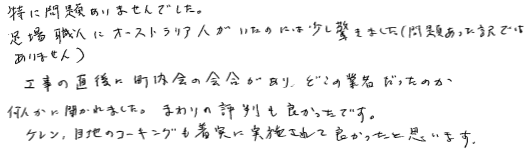 特に問題ありませんでした。
足場職人にオーストラリア人がいたのには少し驚きました(問題あった訳では
ありません)
工事の直後に町内会の会合があり、どこの業者だったのか
何人かに聞かれました。まわりの評判も良かったです。
ケレン、目地のコーキングも着実に実施されて良かったと思います。